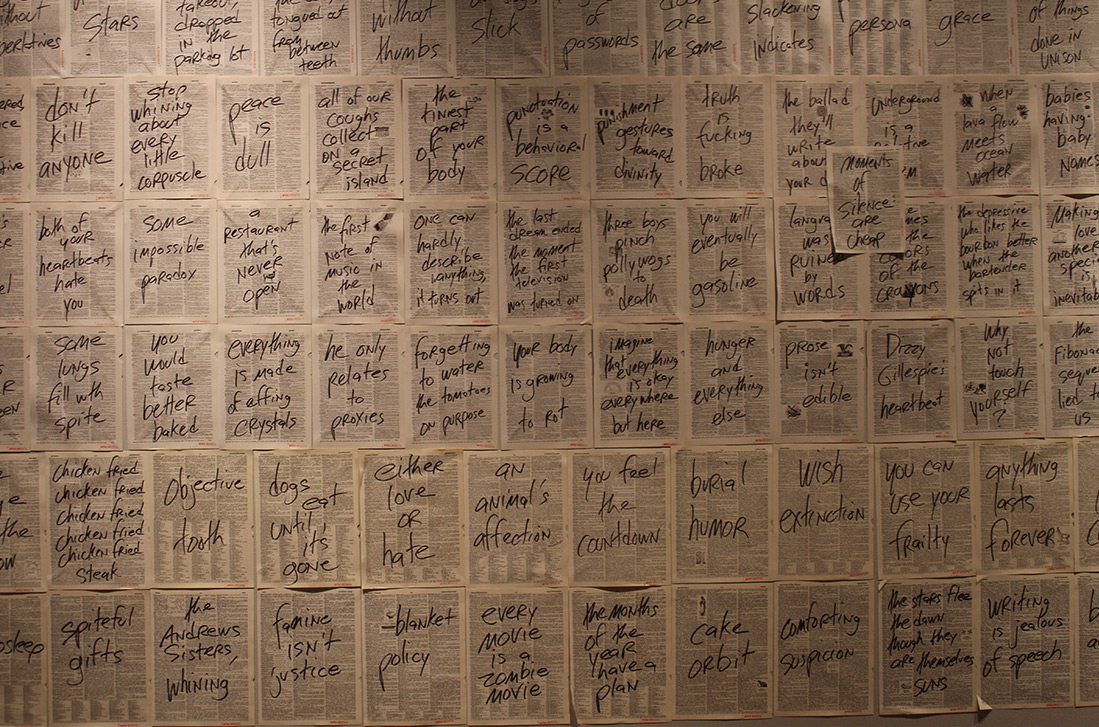 without
superlatives
stars
takeout,
dropped
in the
parking lot
tongued out
from
between
teeth
without
thumbs
slick
of
passwords
are
the same
slackening
indicates
persona
grace
of things
done in
unison
don't
kill
anyone
stop
whining
about
every
little
corpuscle
peace
is
dull
all of our
coughs
collect
on a
secret
island
the
finest
part
of your
body
punctuation
is a
behavioral
scope
punishment
gestures
toward
divinity
truth
is
fucking
broke
the ballad
they'll
write
about
your
underground
is a
moments
of
silence
are
cheap
when
lava flow
meets
ocean
water
babies
having
baby
names
both of
your
heartbeats
hate
you
some
impossible
paradox
a
restaurant
that's
never
open
the first
note of
music in
the
world
one can
hardly
describe
anything,
it turns out
the last
dream ended
the moment
the first
television
was turned on
three boys
pinch
pollywogs
to
death
you will
eventually
be
gasoline
was
ruined
by
words
the
colors
of the
crayons
the depressive
who likes the
bourbon better
when the
bartender
spits in it
making
love
another
is
some
lungs
fill with
spite
you
would
taste
better
baked
everything
is made
of effing
crystals
he only
relates
to
proxies
forgetting
to water
the tomatoes
on purpose
your body
is growing
to rot
imagine
that everything
is okay
everywhere
but here
hunger
and
everything
else
prose
isn't
edible
Dizzy
Gillespie's
heartbeat
why
not
touch
yourself
?
the
lied to
us
the
chicken fried
chicken fried
chicken fried
chicken fried
chicken fried
steak
objective
tooth
dogs
eat
until
it's
gone
either
love
or
hate
an
animal's
affection
you feel
the
countdown
burial
humor
wish
extinction
you can
use your
frailty
anything
lasts
forever
asleep
spiteful
gifts
the
Andrews
Sisters,
whining
famine
isn't
justice
blanket
policy
every
movie
is a
zombie
movie
the months
of the
year
have a
plan
cake
orbit
comforting
suspicion
the stars flee
the dawn
though they
are themselves
suns
writing
is jealous
of speech